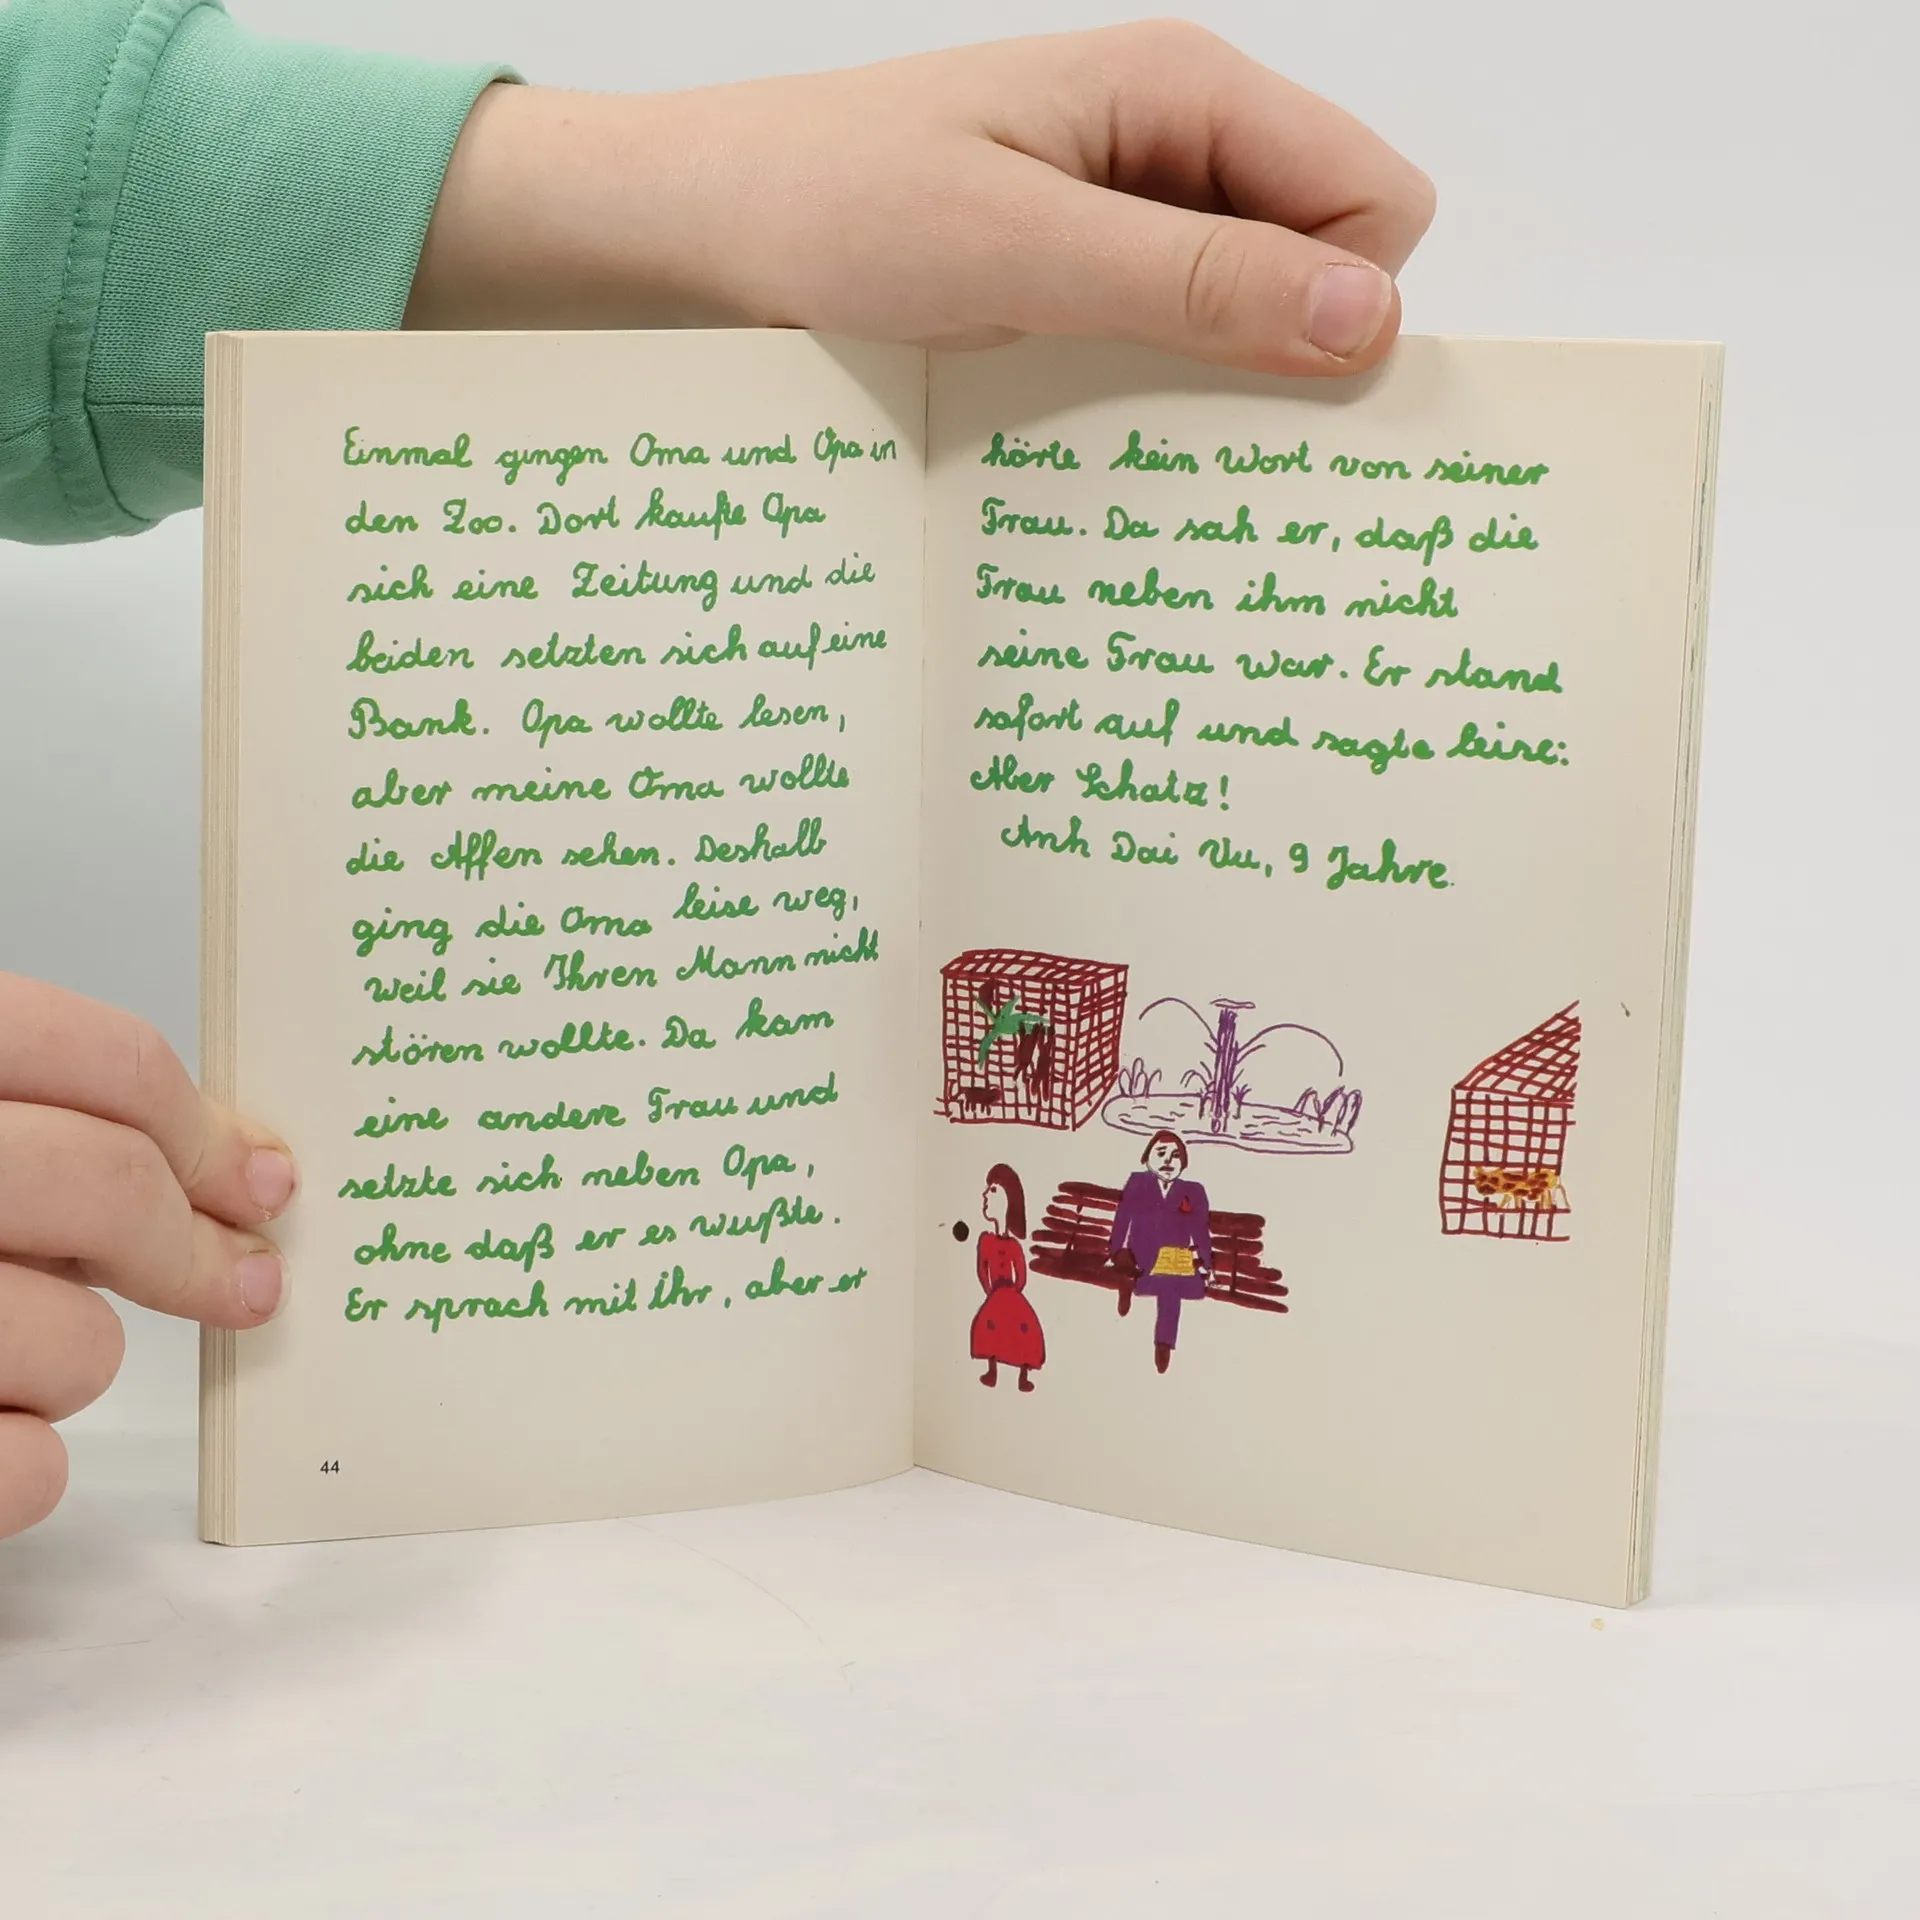 Einmal gingen Oma und Opa in
den Zoo. Dort kaufte Opa
sich eine Zeitung und die
beiden setzten sich auf eine
Bank. Opa wollte lesen,
aber meine Oma wollte
die Affen sehen. Deshalb
ging die Oma leise weg,
weil sie Ihren Mann nicht
stören wollte. Da kam
eine andere Frau und
setzte sich neben Opa,
ohne daß er es wußte.
Er sprach mit ihr, aber er
44
hörte kein Wort von seiner
Frau. Da sah er, daß die
Frau neben ihm nicht
seine Frau war. Er stand
sofort auf und sagte leise:
Aber Schatz!
Anh Dai Vu, 9 Jahre.